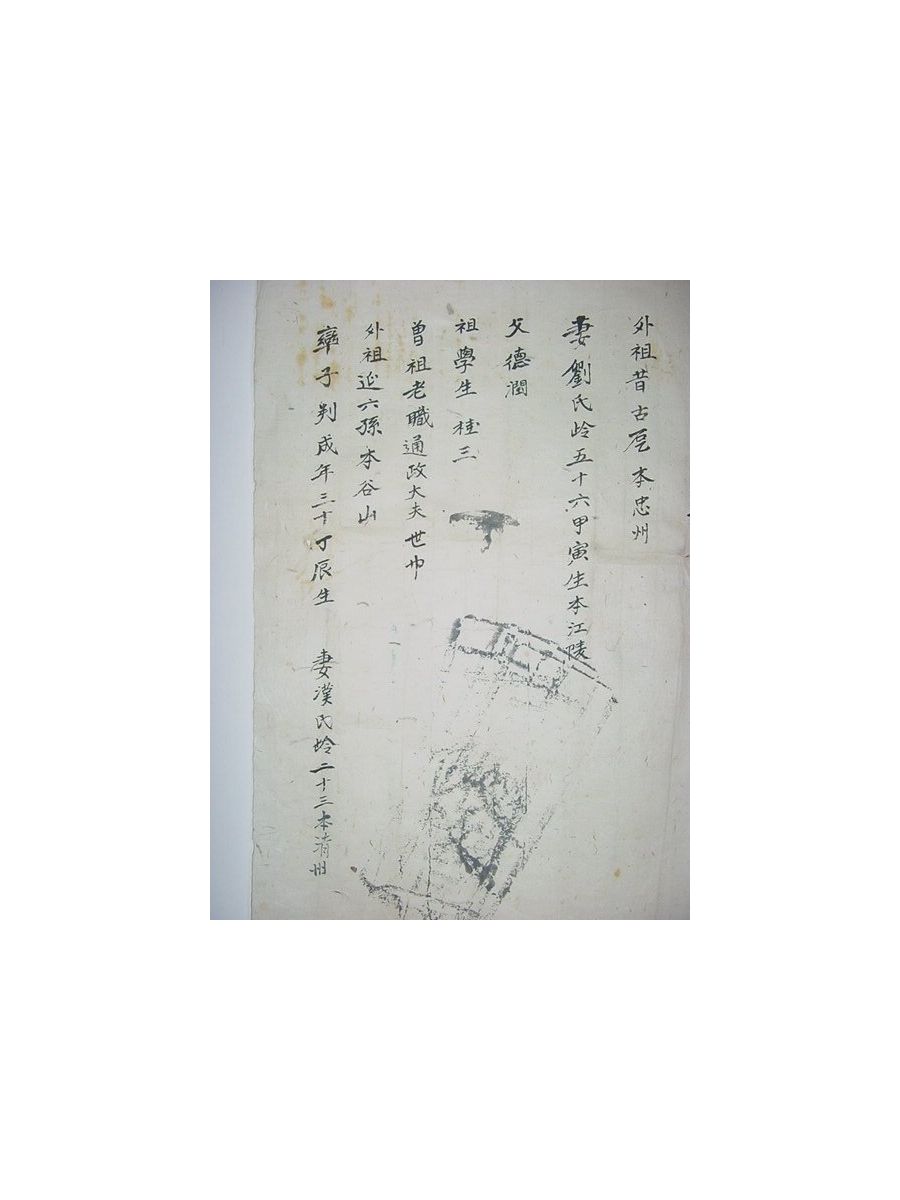 外祖昔古 本忠州
妻劉氏齡五十六甲寅生本江陵
父德潤
祖學生桂三
曾祖老職通政大夫世
外祖延六孫本谷山
率子判成年三十丁辰生 妻漢氏齡二十三本清州